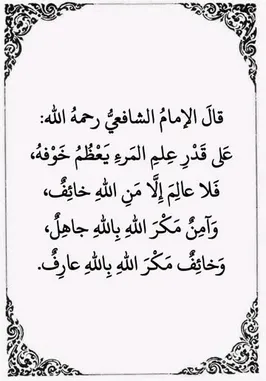 قالَ الإمامُ الشافعيُّ رحمهُ الله:
عَلى قَدْرِ عِلمِ المَرءِ يَعْظُمُ خَوْفهُ،
فَلا عالِمَ إِلَّا مَنِ اللهِ خائِفٌ،
وَآمِنٌ مَكْرَ اللهِ بِاللهِ جاهِلٌ،
وَخائِفٌ مَكْرَ اللهِ بِاللهِ عارِفٌ.